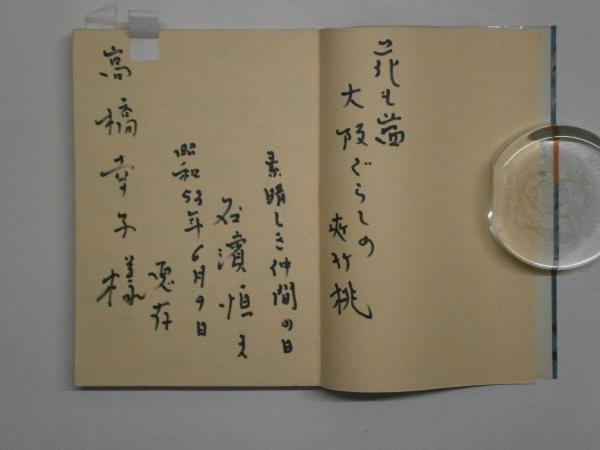 花も
大阪ぐらしの
夾竹桃
素晴しき仲間の日
石濱恒夫
昭和53年6月9日
恵存
高橋幸子様